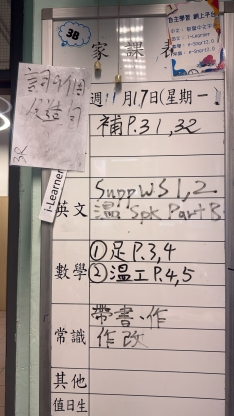 3B
家課表
自主學習 網上平台
詞5個
3R
I-Learner
週:1月17日(星期一)
補P.31,32
英文
Supp WS 1,2
溫 Spk Part B
數學
①足P.3,4
②溫工P.4,5
常識
帶書、作
作改
其他
值日生